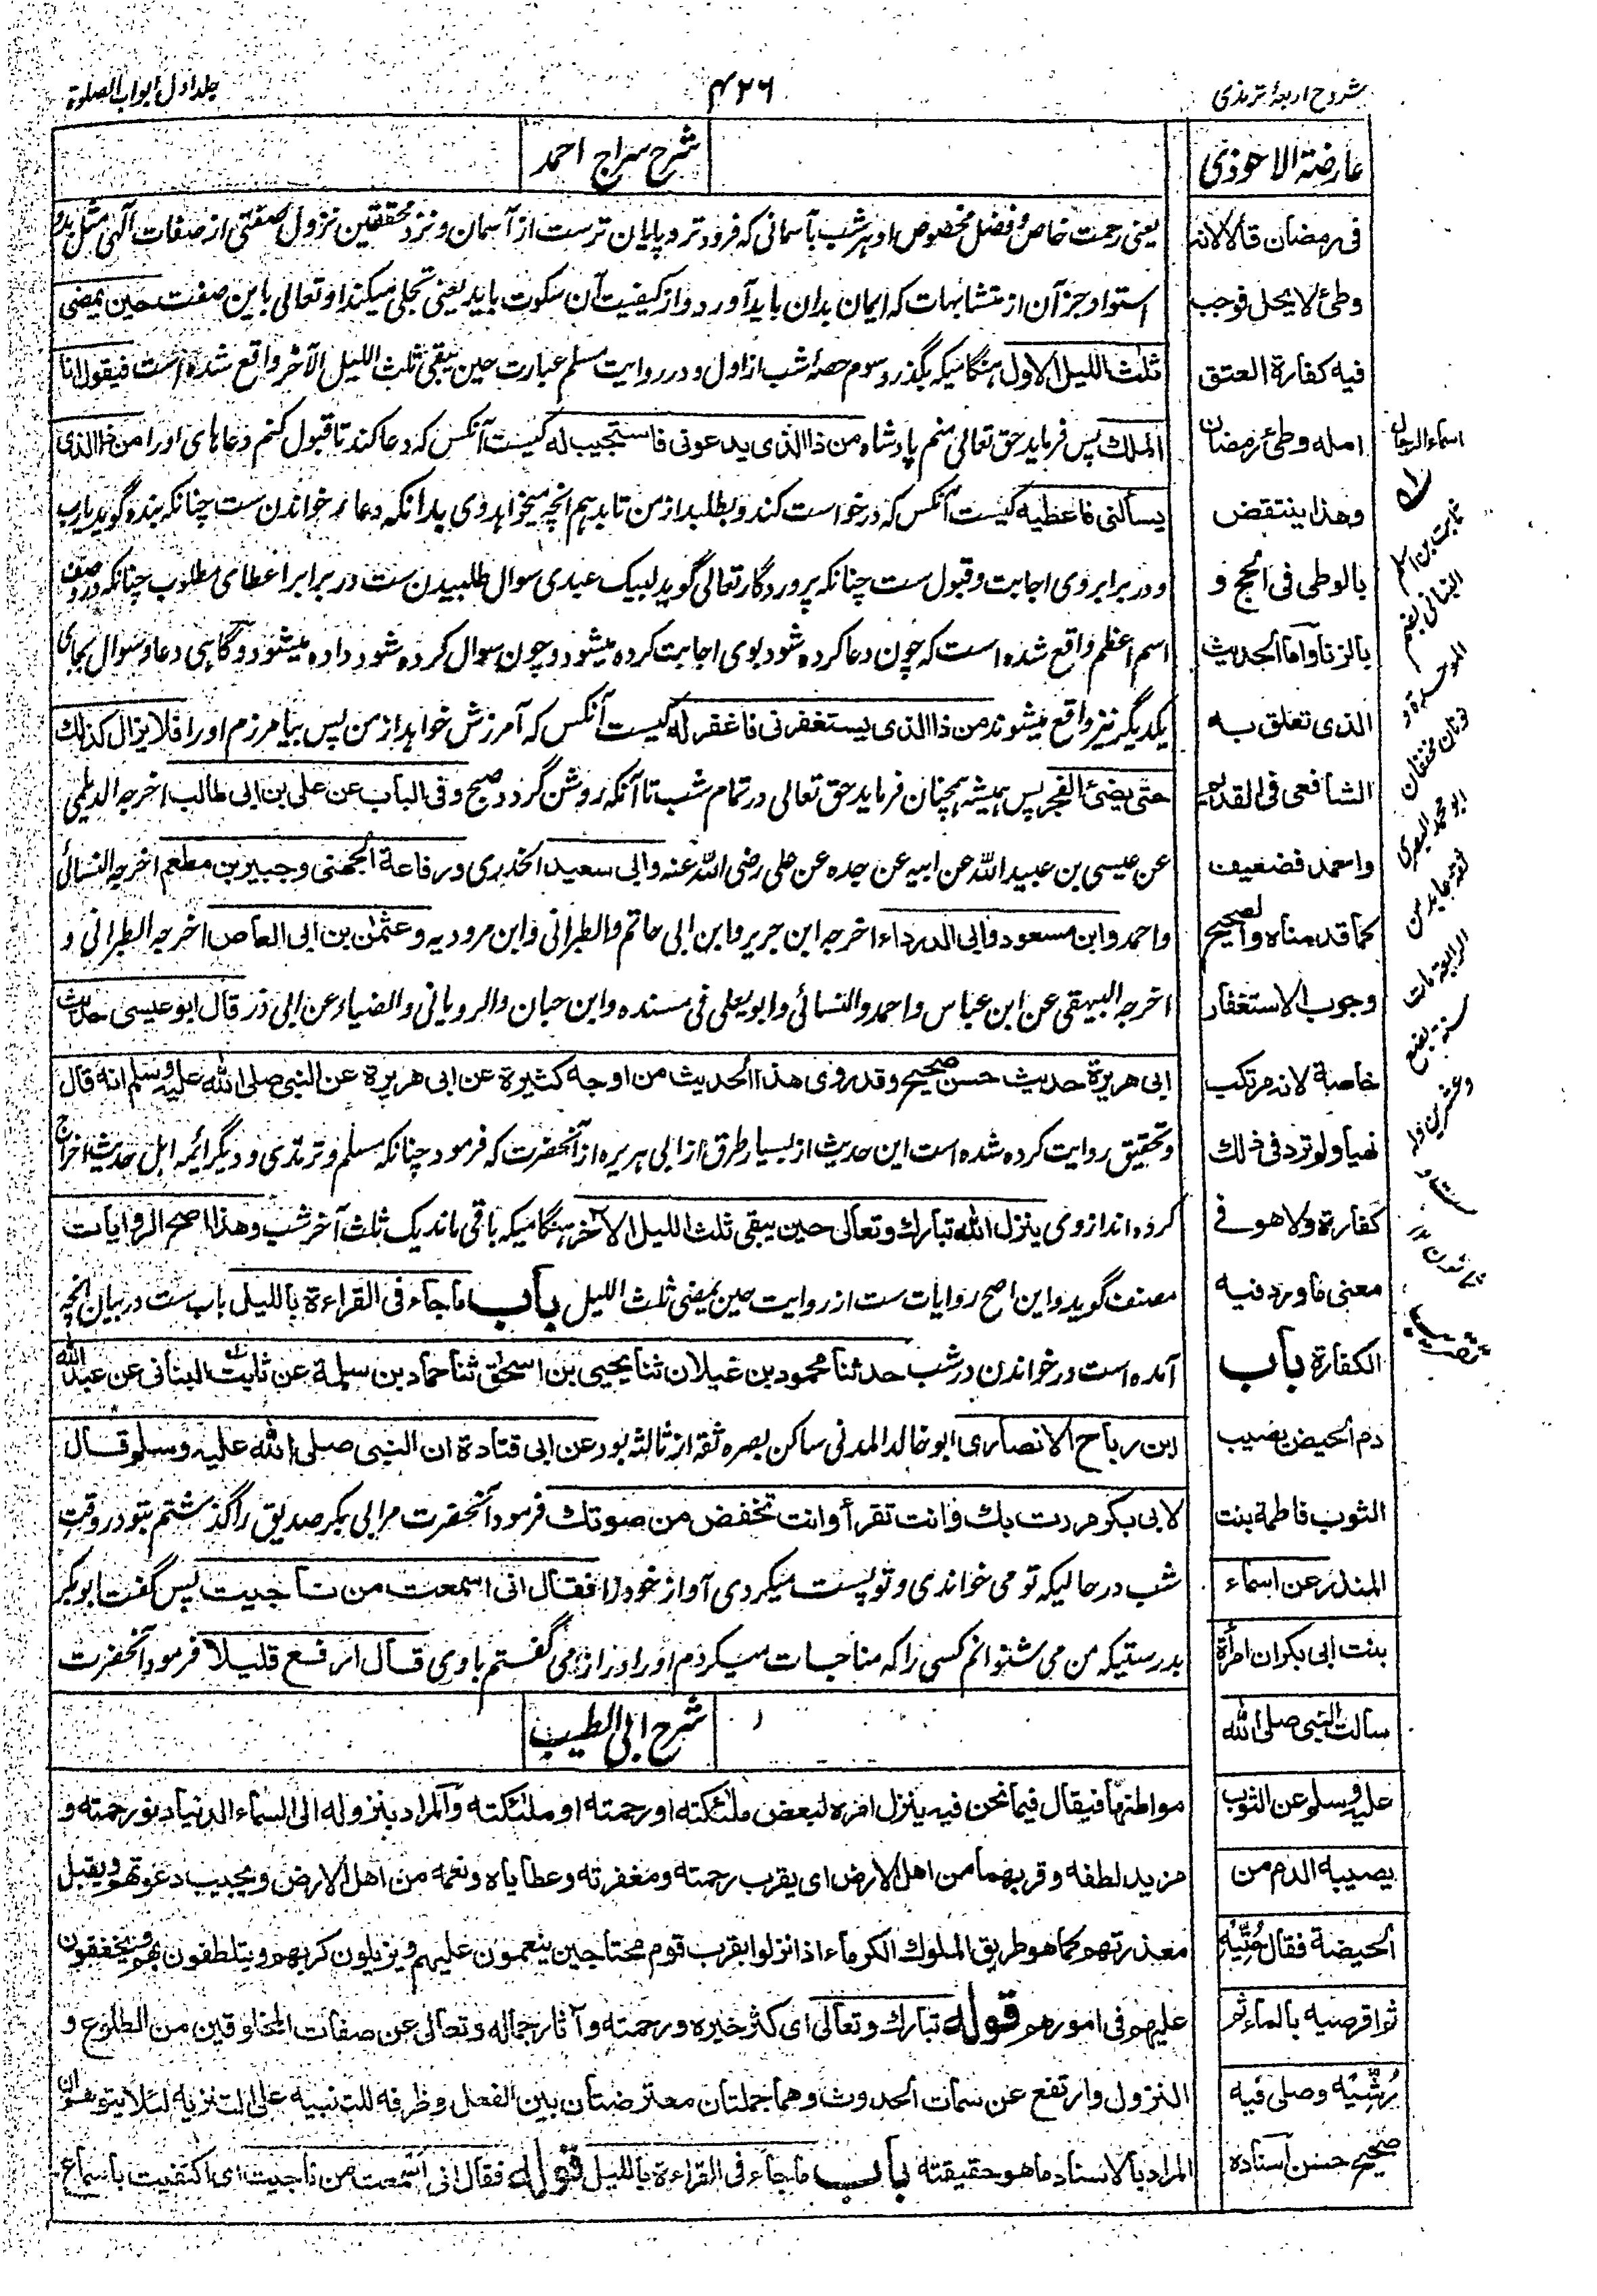 شروح اربعۀ ترمذی
۴۲۶
جلد اول ابواب الصلوة
عارضة الاحوذی
فی رمضان قالا لانه
وطئ لا یحل فوجب
فیه کفارة العتق
اصله وطئ رمضان
وهذا ینتقض
بالوطی فی الحج و
بالزنا واما الحدیث
الذی تعلق به
الشافعی فی القدیم
واحمد فضعیف
کما قدمناه والصحیح
وجوب الاستغفار
خاصة لانه مرتکب
نهیا ولم ترد فی ذلک
کفارة ولا هو فی
معنی ما ورد فیه
الکفارة باب
دم الحیض یصیب
الثوب فاطمة بنت
المنذر عن اسماء
بنت ابی بکر ان امرأة
سالت النبی صلی الله
علیه وسلم عن الثوب
یصیبه الدم من
الحیضة فقال حُتِّیْه
ثم اقرصیه بالماء ثم
رُشِّیْه وصلی فیه
صحیح حسن اسناده
شرح سراج احمد
یعنی رحمت خاص و فضل مخصوص او هر شب بآسمانی که فرود تر و پایان ترست از آسمان و نزد محققین نزول صفتی از صفات الٓهی مثل ید و
استوا و جز آن از متشابهات که ایمان بدان باید آورد و از کیفیت آن سکوت باید یعنی تجلی میکند او تعالی باین صفت حین یمضی
ثلث اللیل الاول هنگامیکه بگذرد سوم حصۀ شب از اول و در روایت مسلم عبارت حین یبقی ثلث اللیل الآخر واقع شده است فیقول انا
الملک پس فرماید حق تعالی منم پادشاه من ذا الذی یدعونی فاستجیب له کیست آنکس که دعا کند تا قبول کنم دعاهای او را من ذا الذی
یسألنی فاعطیه کیست آنکس که درخواست کند و بطلبد از من تا بدهم انچه میخواهد وی بدانکه دعا خواندن ست چنانکه بنده گوید یارب
و در برابر وی اجابت و قبول ست چنانکه پروردگار تعالی گوید لبیک عبدی سوال طلبیدن ست در برابر اعطای مطلوب چنانکه در وصف
اسم اعظم واقع شده است که چون دعا کرده شود بوی اجابت کرده میشود و چون سوال کرده شود داده میشود و گاهی دعا و سوال بجای
یکدیگر نیز واقع میشوند من ذا الذی یستغفرنی فاغفر له کیست آنکس که آمرزش خواهد از من پس بیامرزم او را فلا یزال کذلک
حتی یضئ الفجر پس همیشه همچنان فرماید حق تعالی در تمام شب تا آنکه روشن گردد صبح وفی الباب عن علی بن ابی طالب اخرجه الدیلمی
عن عیسی بن عبید الله عن ابیه عن جده عن علی رضی الله عنه وابی سعید الخدری ورفاعة الجهنی وجبیر بن مطعم اخرجه النسائی
واحمد وابن مسعود وابی الدرداء اخرجه ابن جریر وابن ابی حاتم والطبرانی وابن مردویه وعثمٰن بن ابی العاص اخرجه الطبرانی و
اخرجه البیهقی عن ابن عباس واحمد والنسائی وابو یعلی فی مسنده وابن حبان والرویانی والضیاء عن ابی ذر قال ابو عیسی حدیث
ابی هریرة حدیث حسن صحیح وقد روی هذا الحدیث من اوجه کثیرة عن ابی هریرة عن النبی صلی الله علیه وسلم انه قال
و تحقیق روایت کرده شده است این حدیث از بسیار طرق از ابی هریره از آنحضرت که فرمود چنانکه مسلم و ترمذی و دیگر ائمه اهل حدیث اخراج
کرده اند از وی ینزل الله تبارک وتعالی حین یبقی ثلث اللیل الآخر هنگامیکه باقی ماند یک ثلث آخر شب وهذا اصح الروایات
مصنف گوید و این اصح روایات ست از روایت حین یمضی ثلث اللیل باب ما جاء فی القراءة باللیل باب ست در بیان انچه
آمده است در خواندن در شب حدثنا محمود بن غیلان ثنا یحیی بن اسحٰق ثنا حماد بن سلمة عن ثابت البنانی عن عبد الله
ابن رباح الانصاری ابو خالد المدنی ساکن بصره ثقه از ثالثه بود عن ابی قتادة ان النبی صلی الله علیه وسلم قال
لابی بکر مررت بک وانت تقرأ وانت تخفض من صوتک فرمود آنحضرت مر ابی بکر صدیق را گذشتم بتو در وقت
شب در حالیکه تو می خواندی و تو پست میکردی آواز خود را فقال انی اسمعت من ناجیت پس گفت ابو بکر
بدرستیکه من می شنوانم کسی را که مناجات میکردم او را و راز می گفتم با وی قال ارفع قلیلا فرمود آنحضرت
شرح ابی الطیب
مواطنها فیقال فیما نحن فیه ینزل امره لبعض ملئکته او رحمته او ملئکته والمراد بنزوله الی السماء الدنیا دنو رحمته و
مزید لطفه وقربهما من اهل الارض ای یقرب رحمته ومغفرته وعطایاه ونعمه من اهل الارض ویجیب دعوتهم ویقبل
معذرتهم کما هو طریق الملوک الکرماء اذا نزلوا بقرب قوم محتاجین ینعمون علیهم ویزیلون کربهم ویتلطفون بهم ویخففون
علیهم فی امورهم قوله تبارک وتعالی ای کثر خیره ورحمته وآثار جماله وتعالی عن صفات المخلوقین من الطلوع و
النزول وارتفع عن سمات الحدوث وهما جملتان معترضتان بین الفعل وظرفه للتنبیه علی التنزیه لئلا یتوهم ان
المراد بالاسناد ما هو حقیقته باب ما جاء فی القراءة باللیل قوله فقال انی اسمعت من ناجیت ای اکتفیت باسماع
اسماء الرجال
ثابت بن اسلم
البنانی بضم
الموحدة و
نونان مخففان
ابو محمد البصری
ثقة عابد من
الرابعة مات
سنة بضع
وعشرین وله
ست و
ثمانون
تقریب